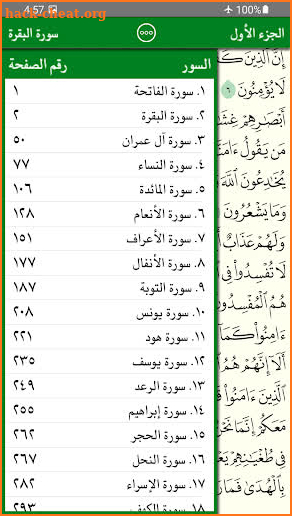 hack-cheat.org
4:57 100%
الجزء الأول سورة البقرة
السور رقم الصفحة
١. سورة الفاتحة ١
٢. سورة البقرة ٢
٣. سورة آل عمران ٥٠
٤. سورة النساء ٧٧
٥. سورة المائدة ١٠٦
٦. سورة الأنعام ١٢٨
٧. سورة الأعراف ١٥١
٨. سورة الأنفال ١٧٧
٩. سورة التوبة ١٨٧
١٠. سورة يونس ٢٠٨
١١. سورة هود ٢٢١
١٢. سورة يوسف ٢٣٥
١٣. سورة الرعد ٢٤٩
١٤. سورة إبراهيم ٢٥٥
١٥. سورة الحجر ٢٦٢
١٦. سورة النحل ٢٦٧
١٧. سورة الإسراء ٢٨٢
١٨. سورة الكهف ٢٩٣
إِنَّ ٱلَّذِينَ
لَا يُؤْمِنُونَ ٦
أَبْصَٰرِهِمْ
مَن يَقُولُ ءَامَنَّا
يُخَٰدِعُونَ ٱللَّهَ
وَمَا يَشْعُرُونَ
وَلَهُمْ عَذَابٌ
لَا تُفْسِدُوا۟ فِى
هُمُ ٱلْمُفْسِدُونَ
ءَامِنُوا۟ كَمَآ
أَلَآ إِنَّهُمْ هُمُ
ٱلَّذِينَ ءَامَنُوا۟
مَعَكُمْ إِنَّمَا نَحْنُ
فِى طُغْيَٰنِهِمْ
بِٱلْهُدَىٰ فَمَا